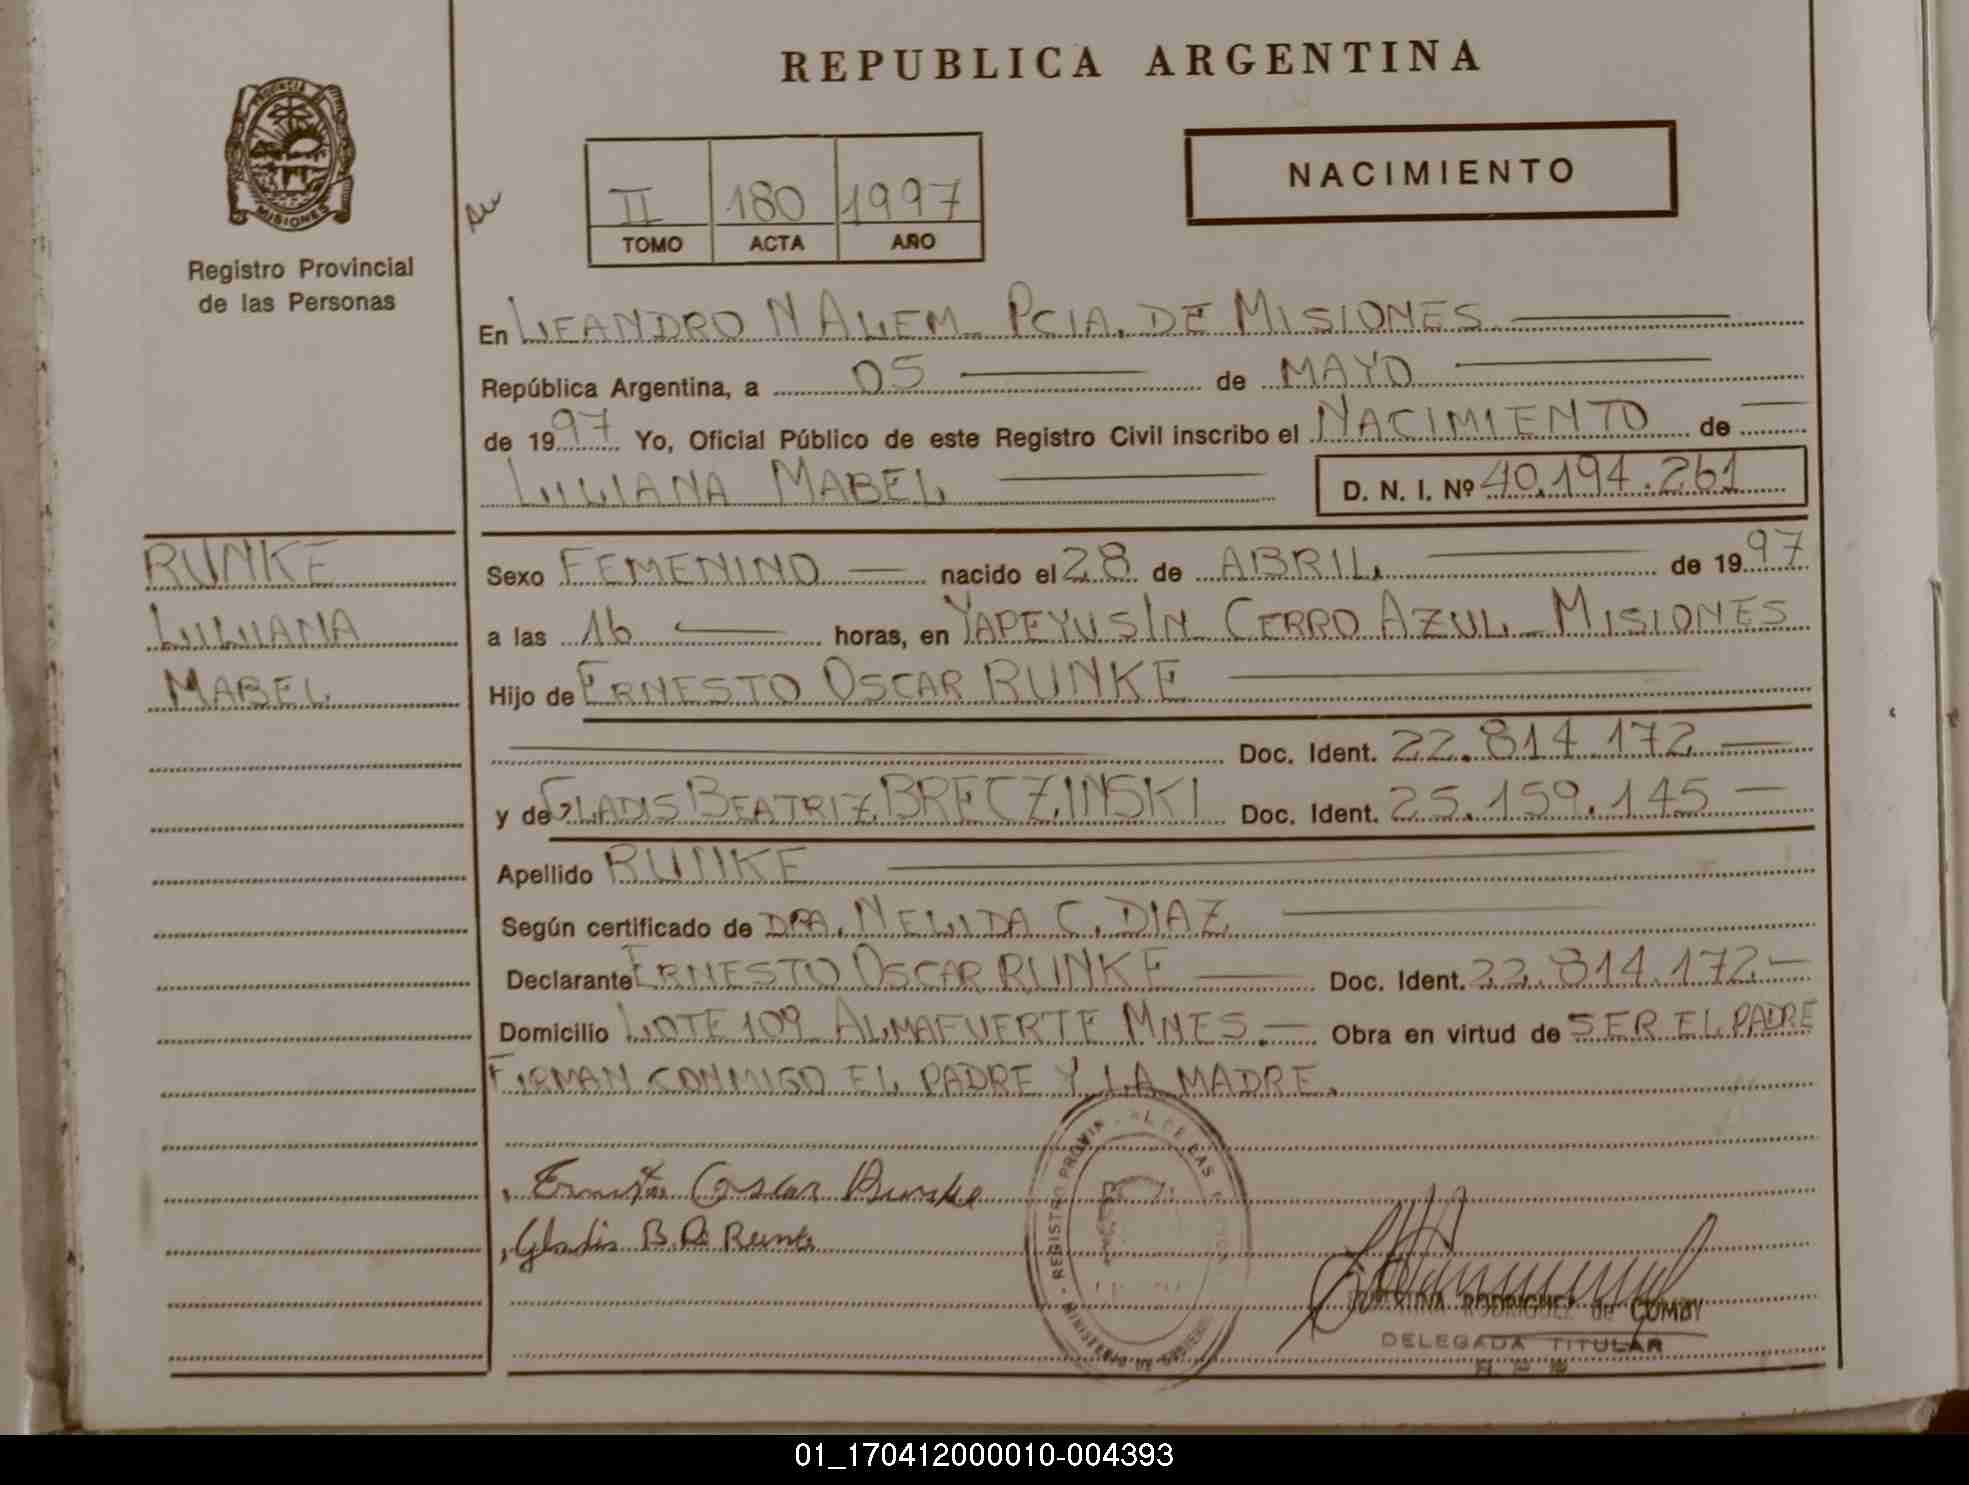 REPUBLICA ARGENTINA
PROVINCIA DE
MISIONES
Registro Provincial
de las Personas
II 180 1997
TOMO ACTA AÑO
NACIMIENTO
En LEANDRO N ALEM - PCIA. DE MISIONES
República Argentina, a 05 de MAYO
de 1997 Yo, Oficial Público de este Registro Civil inscribo el NACIMIENTO de
LILIANA MABEL D. N. I. Nº 40.194.261
RUNKE
LILIANA
MABEL
Sexo FEMENINO nacido el 28 de ABRIL de 1997
a las 16 horas, en YAPEYU S/N CERRO AZUL - MISIONES
Hijo de ERNESTO OSCAR RUNKE
Doc. Ident. 22.814.172
y de GLADIS BEATRIZ BRECZINSKI Doc. Ident. 25.159.145
Apellido RUNKE
Según certificado de DRA. NELIDA C. DIAZ
Declarante ERNESTO OSCAR RUNKE Doc. Ident. 22.814.172
Domicilio LOTE 109 ALMAFUERTE MNES. Obra en virtud de SER EL PADRE
FIRMAN CONMIGO EL PADRE Y LA MADRE.
Ernesto Oscar Runke
Gladis B. De Runke
REGISTRO PROVIN AL DE LAS
MINISTERIO DE GOBIERNO
RODRIGUEZ de COMBY
DELEGADA TITULAR
01_170412000010-004393